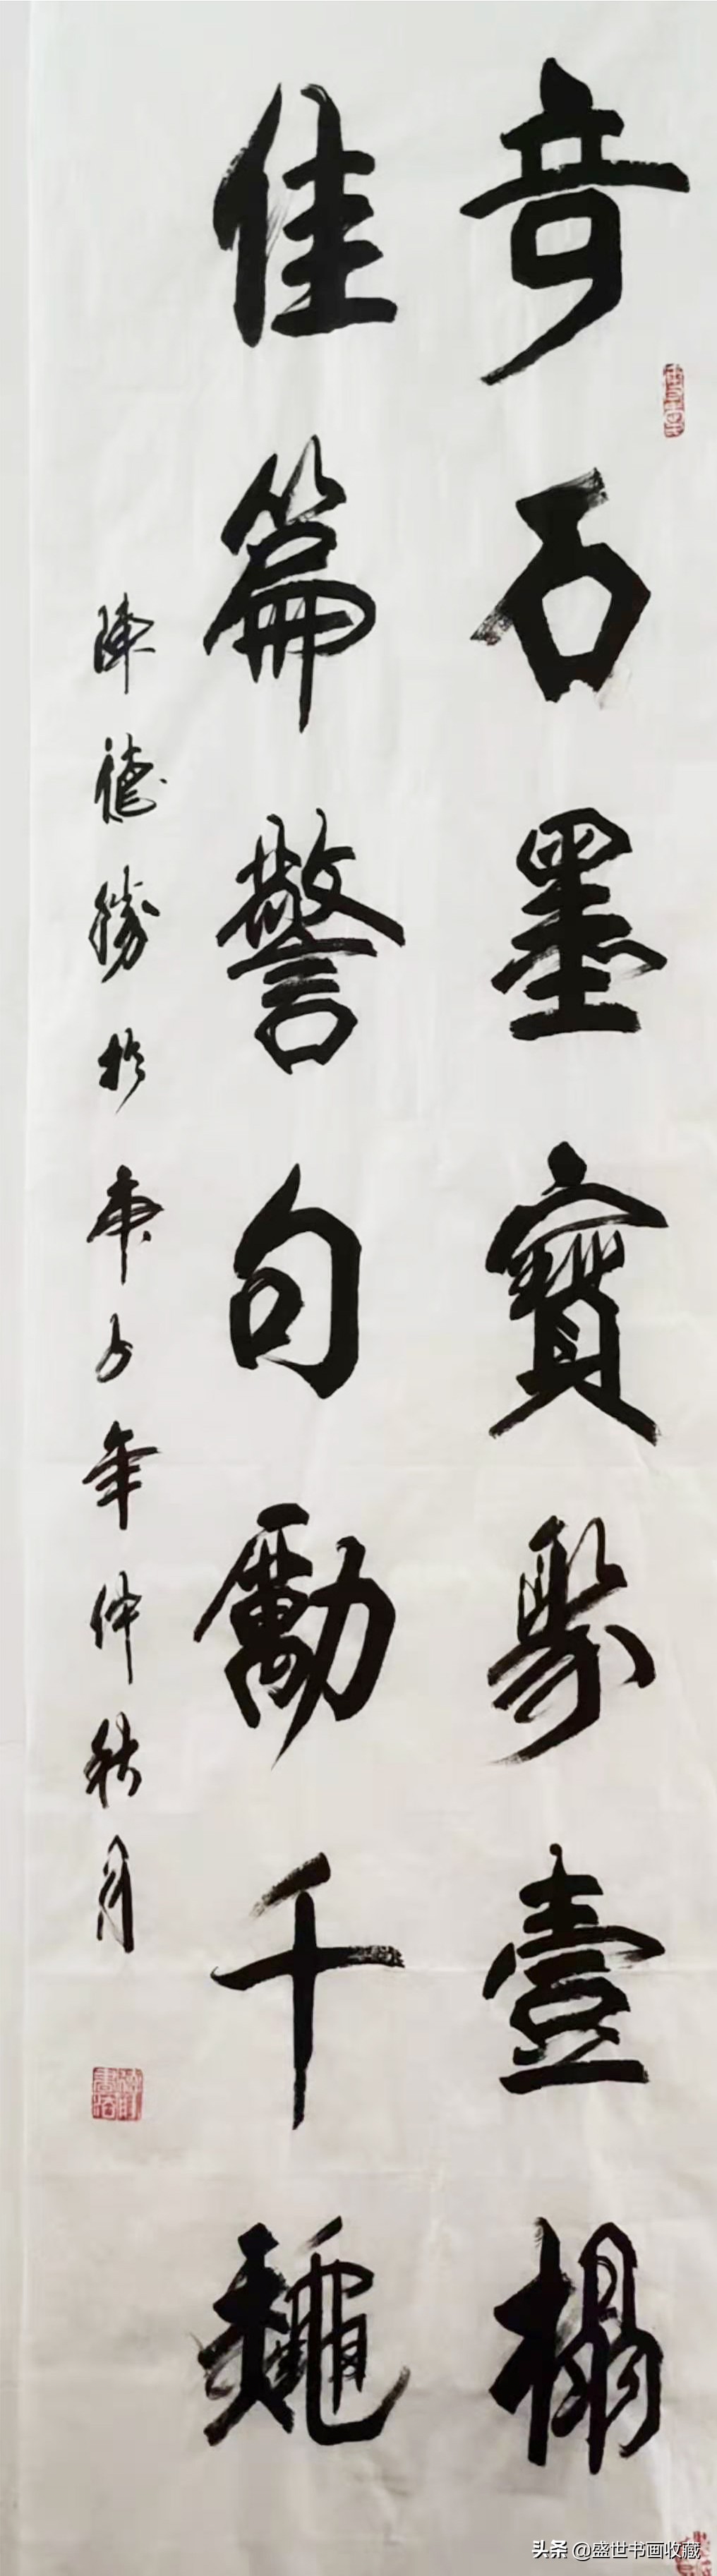 奇石墨寶聚壹榻
佳篇警句勵千龝
陳德勝於庚子年仲秋月
头条 @盛世书画收藏